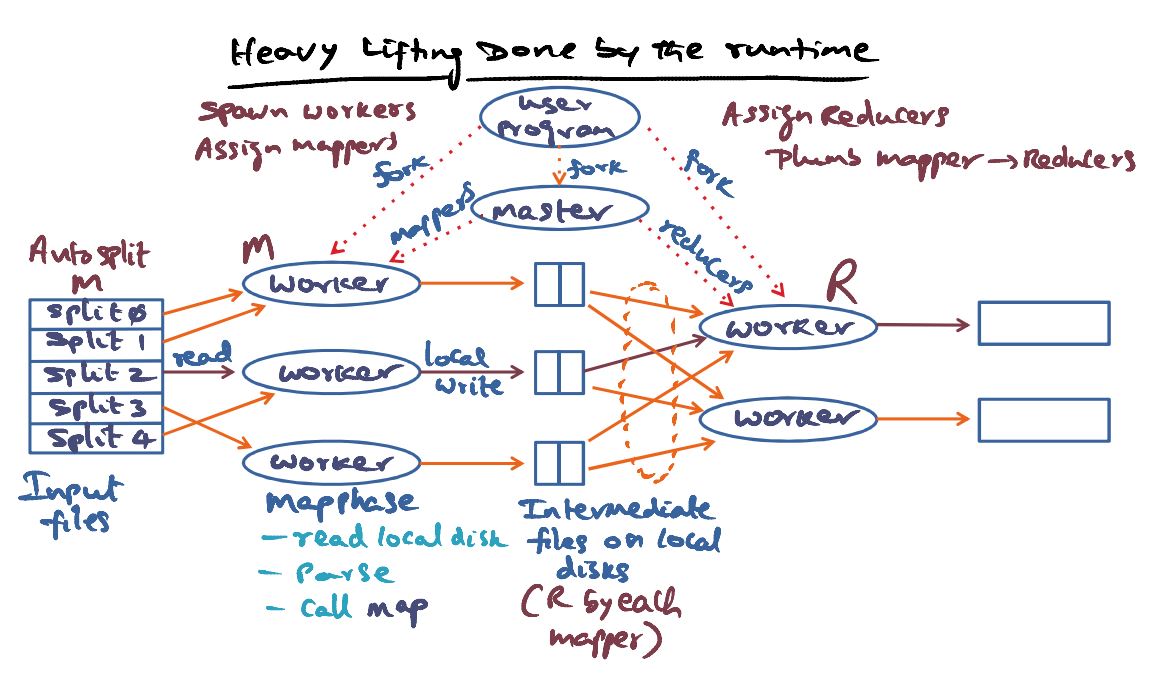 Heavy Lifting Done by the runtime
Spawn workers
Assign mappers
user
program
Assign Reducers
Plumb mapper → Reducers
fork
fork
fork
master
mappers
reducers
Autosplit
M
M
R
split 0
split 1
split 2
split 3
split 4
read
worker
worker
worker
local
write
worker
worker
Input
files
Map phase
- read local disk
- Parse
- call map
Intermediate
files on local
disks
(R by each
mapper)